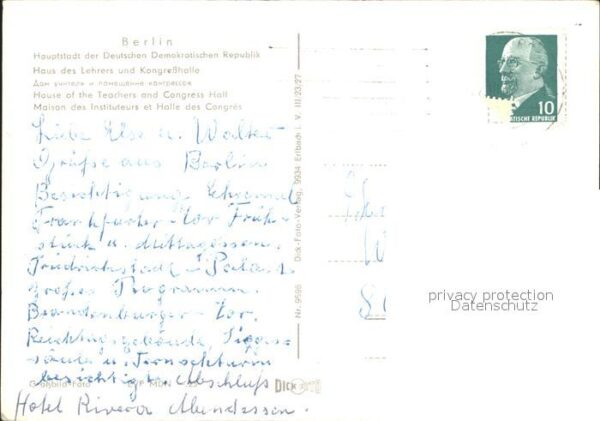 Berlin
Hauptstadt der Deutschen Demokratischen Republik
Haus des Lehrers und Kongreßhalle
Дом учителя и помещение конгрессов
House of the Teachers and Congress Hall
Maison des Instituteurs et Halle des Congrés
Liebe Else u. Walter
Grüße aus Berlin
Besichtigung Ehrenmal
Frankfurter-Tor Früh-
stück u. Mittagessen.
Friedrichstadt-Palast.
Großes Programm.
Brandenburger-Tor.
Reichtagsgebäude, Sieges-
säule u. Fernsehturm
besichtigt. Abschluß
Hotel Riviera Abendessen.
Nr. 9596 Dick-Foto-Verlag, 9934 Erlbach i. V. III/23/27
DICK
10
DEMOKRATISCHE REPUBLIK
privacy protection
Datenschutz